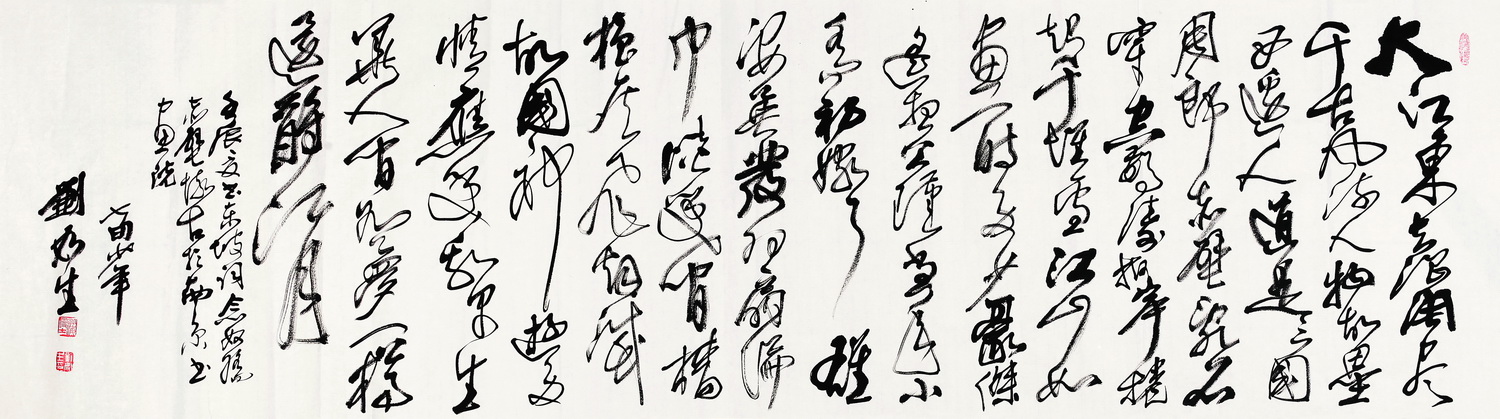 大江東去浪淘盡
千古風流人物故壘
西邊人道是三國
周郎赤壁亂石
穿空驚濤拍岸捲
起千堆雪江山如
畫一時多少豪傑
遙想公瑾當年小
喬初嫁了雄
姿英發羽扇綸
巾談笑間檣
櫓灰飛煙滅
故國神遊多
情應笑我早生
華人間如夢一樽
還酹江月
壬辰夏書東坡詞念奴嬌
赤壁懷古於南京書
畫院